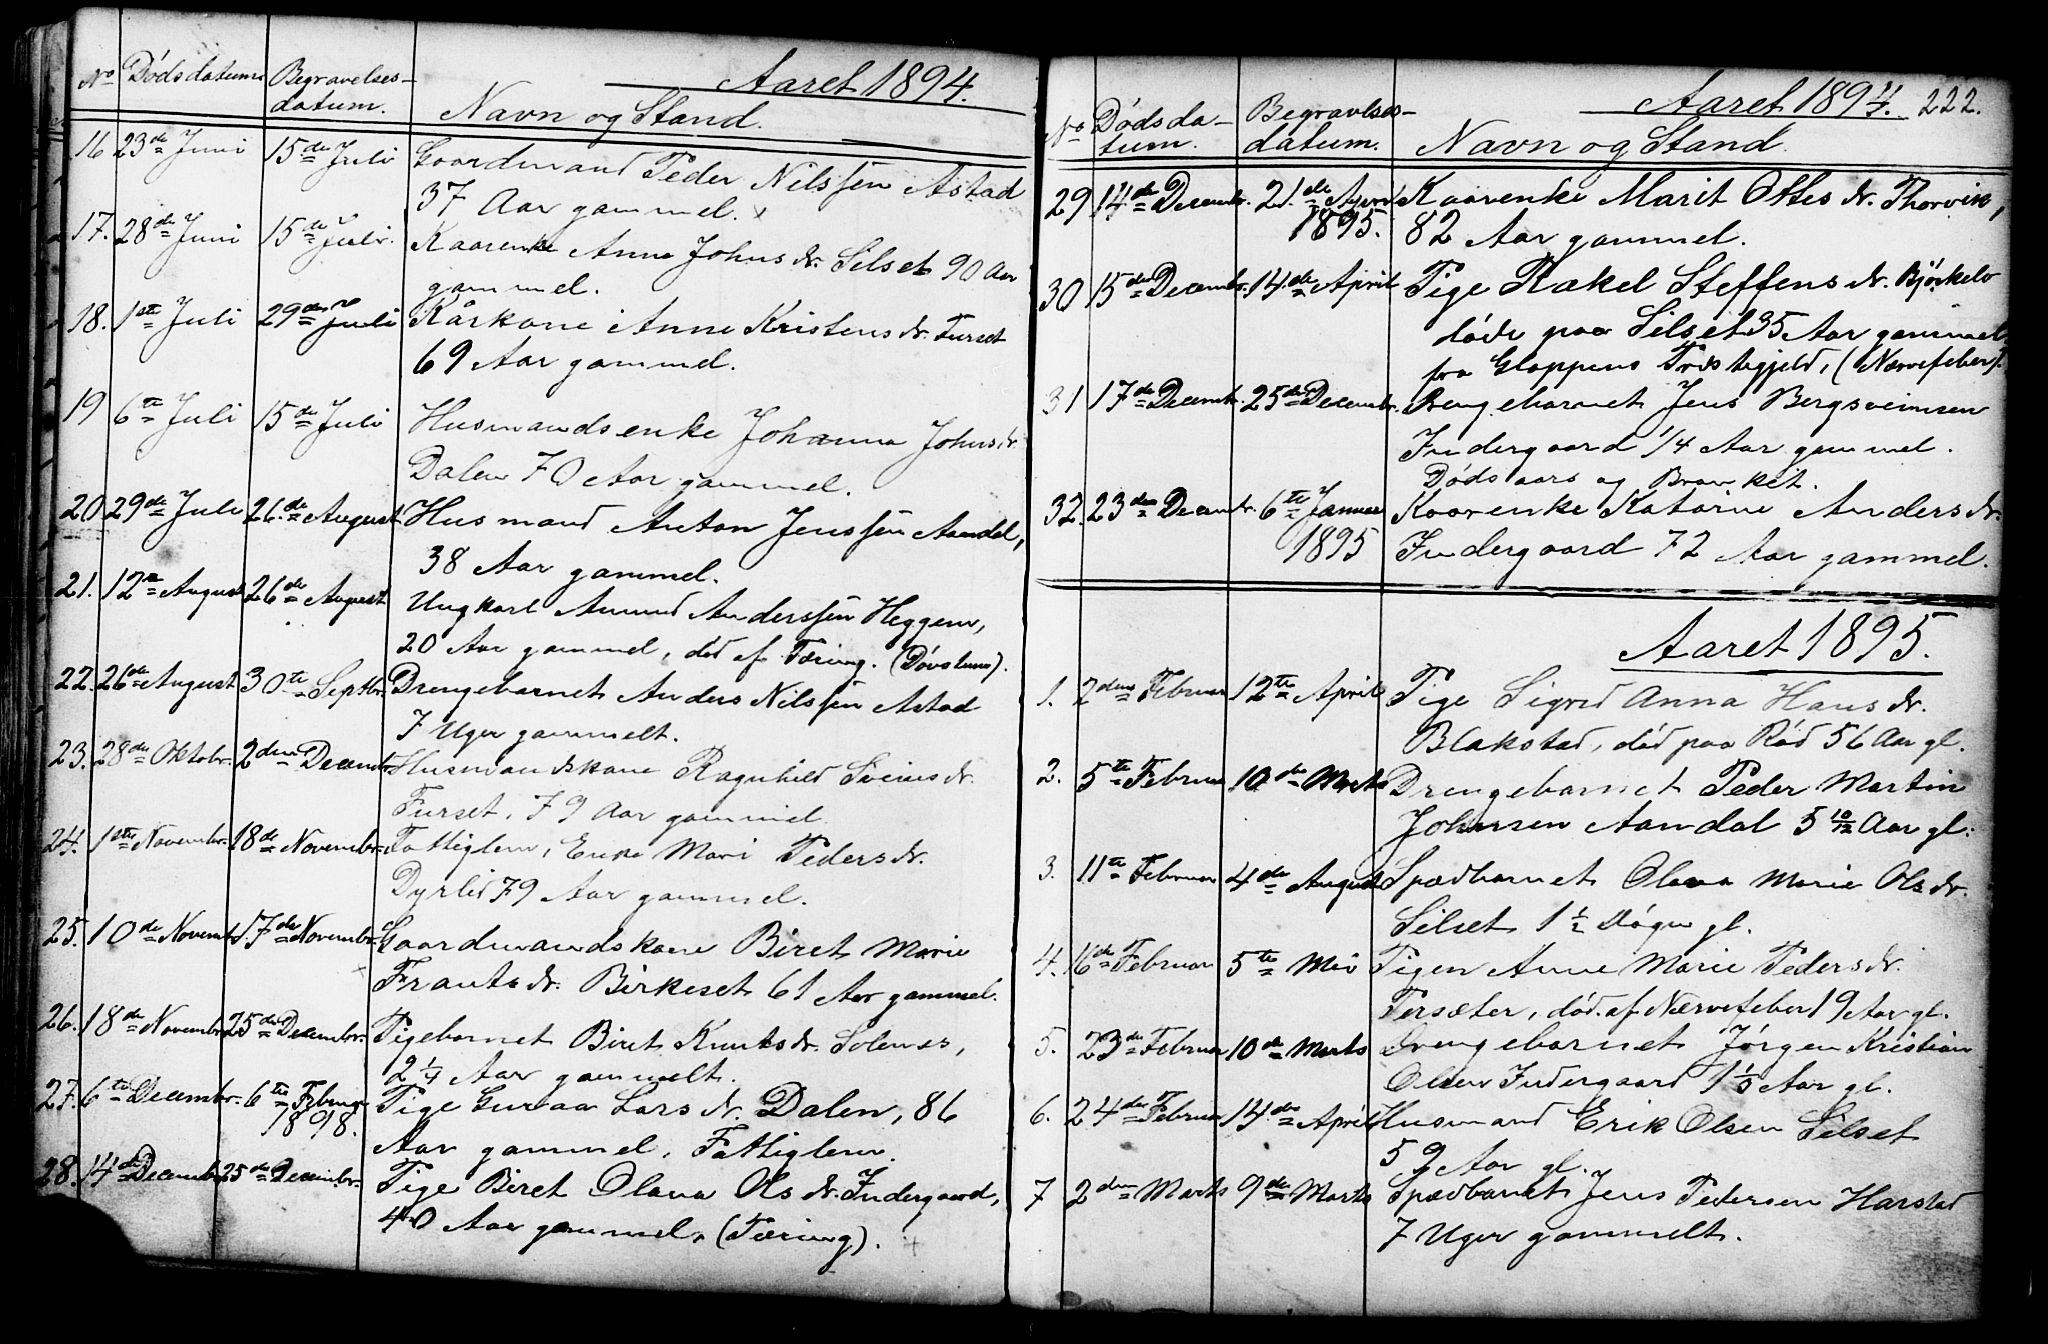 Aaret 1894.
No Dödsdatum Begravelses-
datum. Navn og Stand.
16 23de Juni 15de Juli Gaardmand Peder Nilssen Astad
37 Aar gammel.
17. 28de Juni 15de Juli. Kaarenke Anne Johnsdr. Silset 90 Aar
gammel.
18. 1ste Juli 29de Juli Kårkone Anne Kristensdr. Furset
69 Aar gammel.
19 6te Juli 15de Juli Husmandsenke Johanna Johnsdr.
Dalen 70 Aar gammel.
20 29de Juli 26.de August Husmand Anton Jenssen Aandal,
38 Aar gammel.
21. 12te August 26de August Ungkarl Amund Anderssen Heggem,
20 Aar gammel, död af Tæring. (Dövstum).
22. 26de August 30te Septbr. Drengebarnet Anders Nilssen Astad
7 Uger gammelt.
23. 28de Oktobr. 2den Decembr. Husmandskone Ragnhild Sveinsdr.
Furset, 79 Aar gammel
24. 1ste Novembr. 18de Novembr. Fattiglem, Enke Mari Pedersdr.
Dyrlid 79 Aar gammel.
25. 10de Novembr. 17de Novembr. Gaardmandskone Beret Marie
Frantsdr. Birkeset 61 Aar gammel.
26. 18de Novembr. 25de Decembr. Pigebarnet Beret Knutsdr. Solemes,
2 1/4 Aar gammelt.
27. 6te Decembr. 6te Februar Pige Guraa Larsdr. Dalen, 86
1898.
Aar gammel, Fattiglem.
28. 14de Decembr. 25de Decembr. Pige Beret Olava Olsdr. Indergaard,
40 Aar gammel, (Tæring).
Aaret 1894. 222.
No Dödsda-
tum. Begravelses-
datum. Navn og Stand.
29 14de Decembr. 21.de April Kaarenke Marit Ottesdr. Thorvik,
1895. 82 Aar gammel.
30 15de Decembr. 14.de April Pige Rakel Steffensdr. Björkelo
döde paa Silset 35 Aar gammel
fra Gloppens Præstegjeld, (Nærvefeber).
31 17de Decembr. 25de Decembr. Drengebarnet Jens Bergsveinsen
Indergaard 1/4 Aar gammel.
Dödsaars og
32. 23de Decembr. 6te Januar Kaarenke Katarine Andersdr.
1895 Indergaard 72 Aar gammel.
Aaret 1895.
1. 2den Februar 12te April Pige Sigrid Anna Hansdr.
Blakstad, död paa Röd 56 Aar gl.
2. 5te Februar 10de Marts Drengebarnet Peder Martin
Johnsen Aandal 5 10/12 Aar gl.
3. 11te Februar 4de August Spædbarnet Olava Marie Olsdr.
Silset 1 1/2 Dögn gl.
4. 16de Februar 5te Mai Pigen Anne Marie Pedersdr.
Persæter, död af Nærvefeber 19 Aar gl.
5. 23de Februar 10de Marts Drengebarnet Jörgen Kristian
Olsen Indergaard 1 1/3 Aar gl.
6. 24de Februar 14de April Husmand Erik Olsen Silset
59 Aar gl.
7 2den Marts 9de Marts Spædbarnet Jens Pedersen Harstad
7 Uger gammelt.